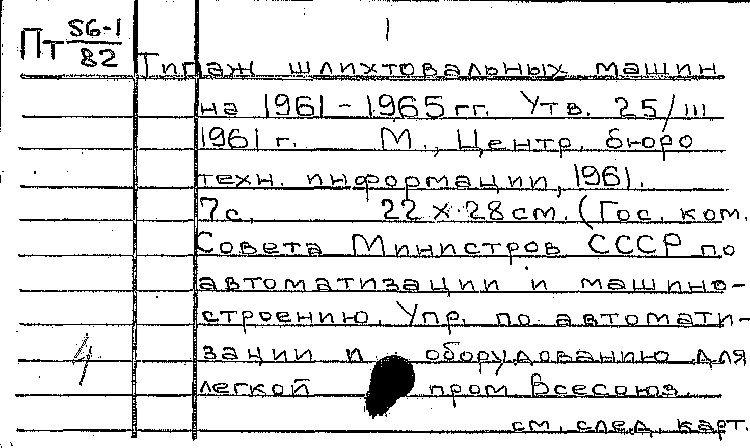 1
Пт 56-1/82
Типаж шлихтовальных машин
на 1961-1965 гг. Утв. 25/III
1961 г. М., Центр. бюро
техн. информации, 1961.
7 с. 22 х 28 см. (Гос. ком.
Совета Министров СССР по
автоматизации и машино-
строению. Упр. по автомати-
зации и оборудованию для
легкой пром Всесоюз.
см. след. карт.
4